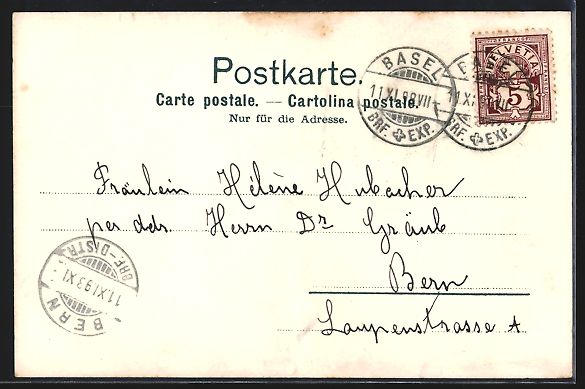 Postkarte.
Carte postale. — Cartolina postale.
Nur für die Adresse.
FRANCO
HELVETIA
5
BASEL
11.XI.98.VII-
BRF. EXP.
BRF. EXP.
Fräulein Hélène Hubacher
per adr. Herrn Dr Gräub
Bern
Laupenstrasse
BRF.-DISTR.
11.XI.93.XI.
BERN